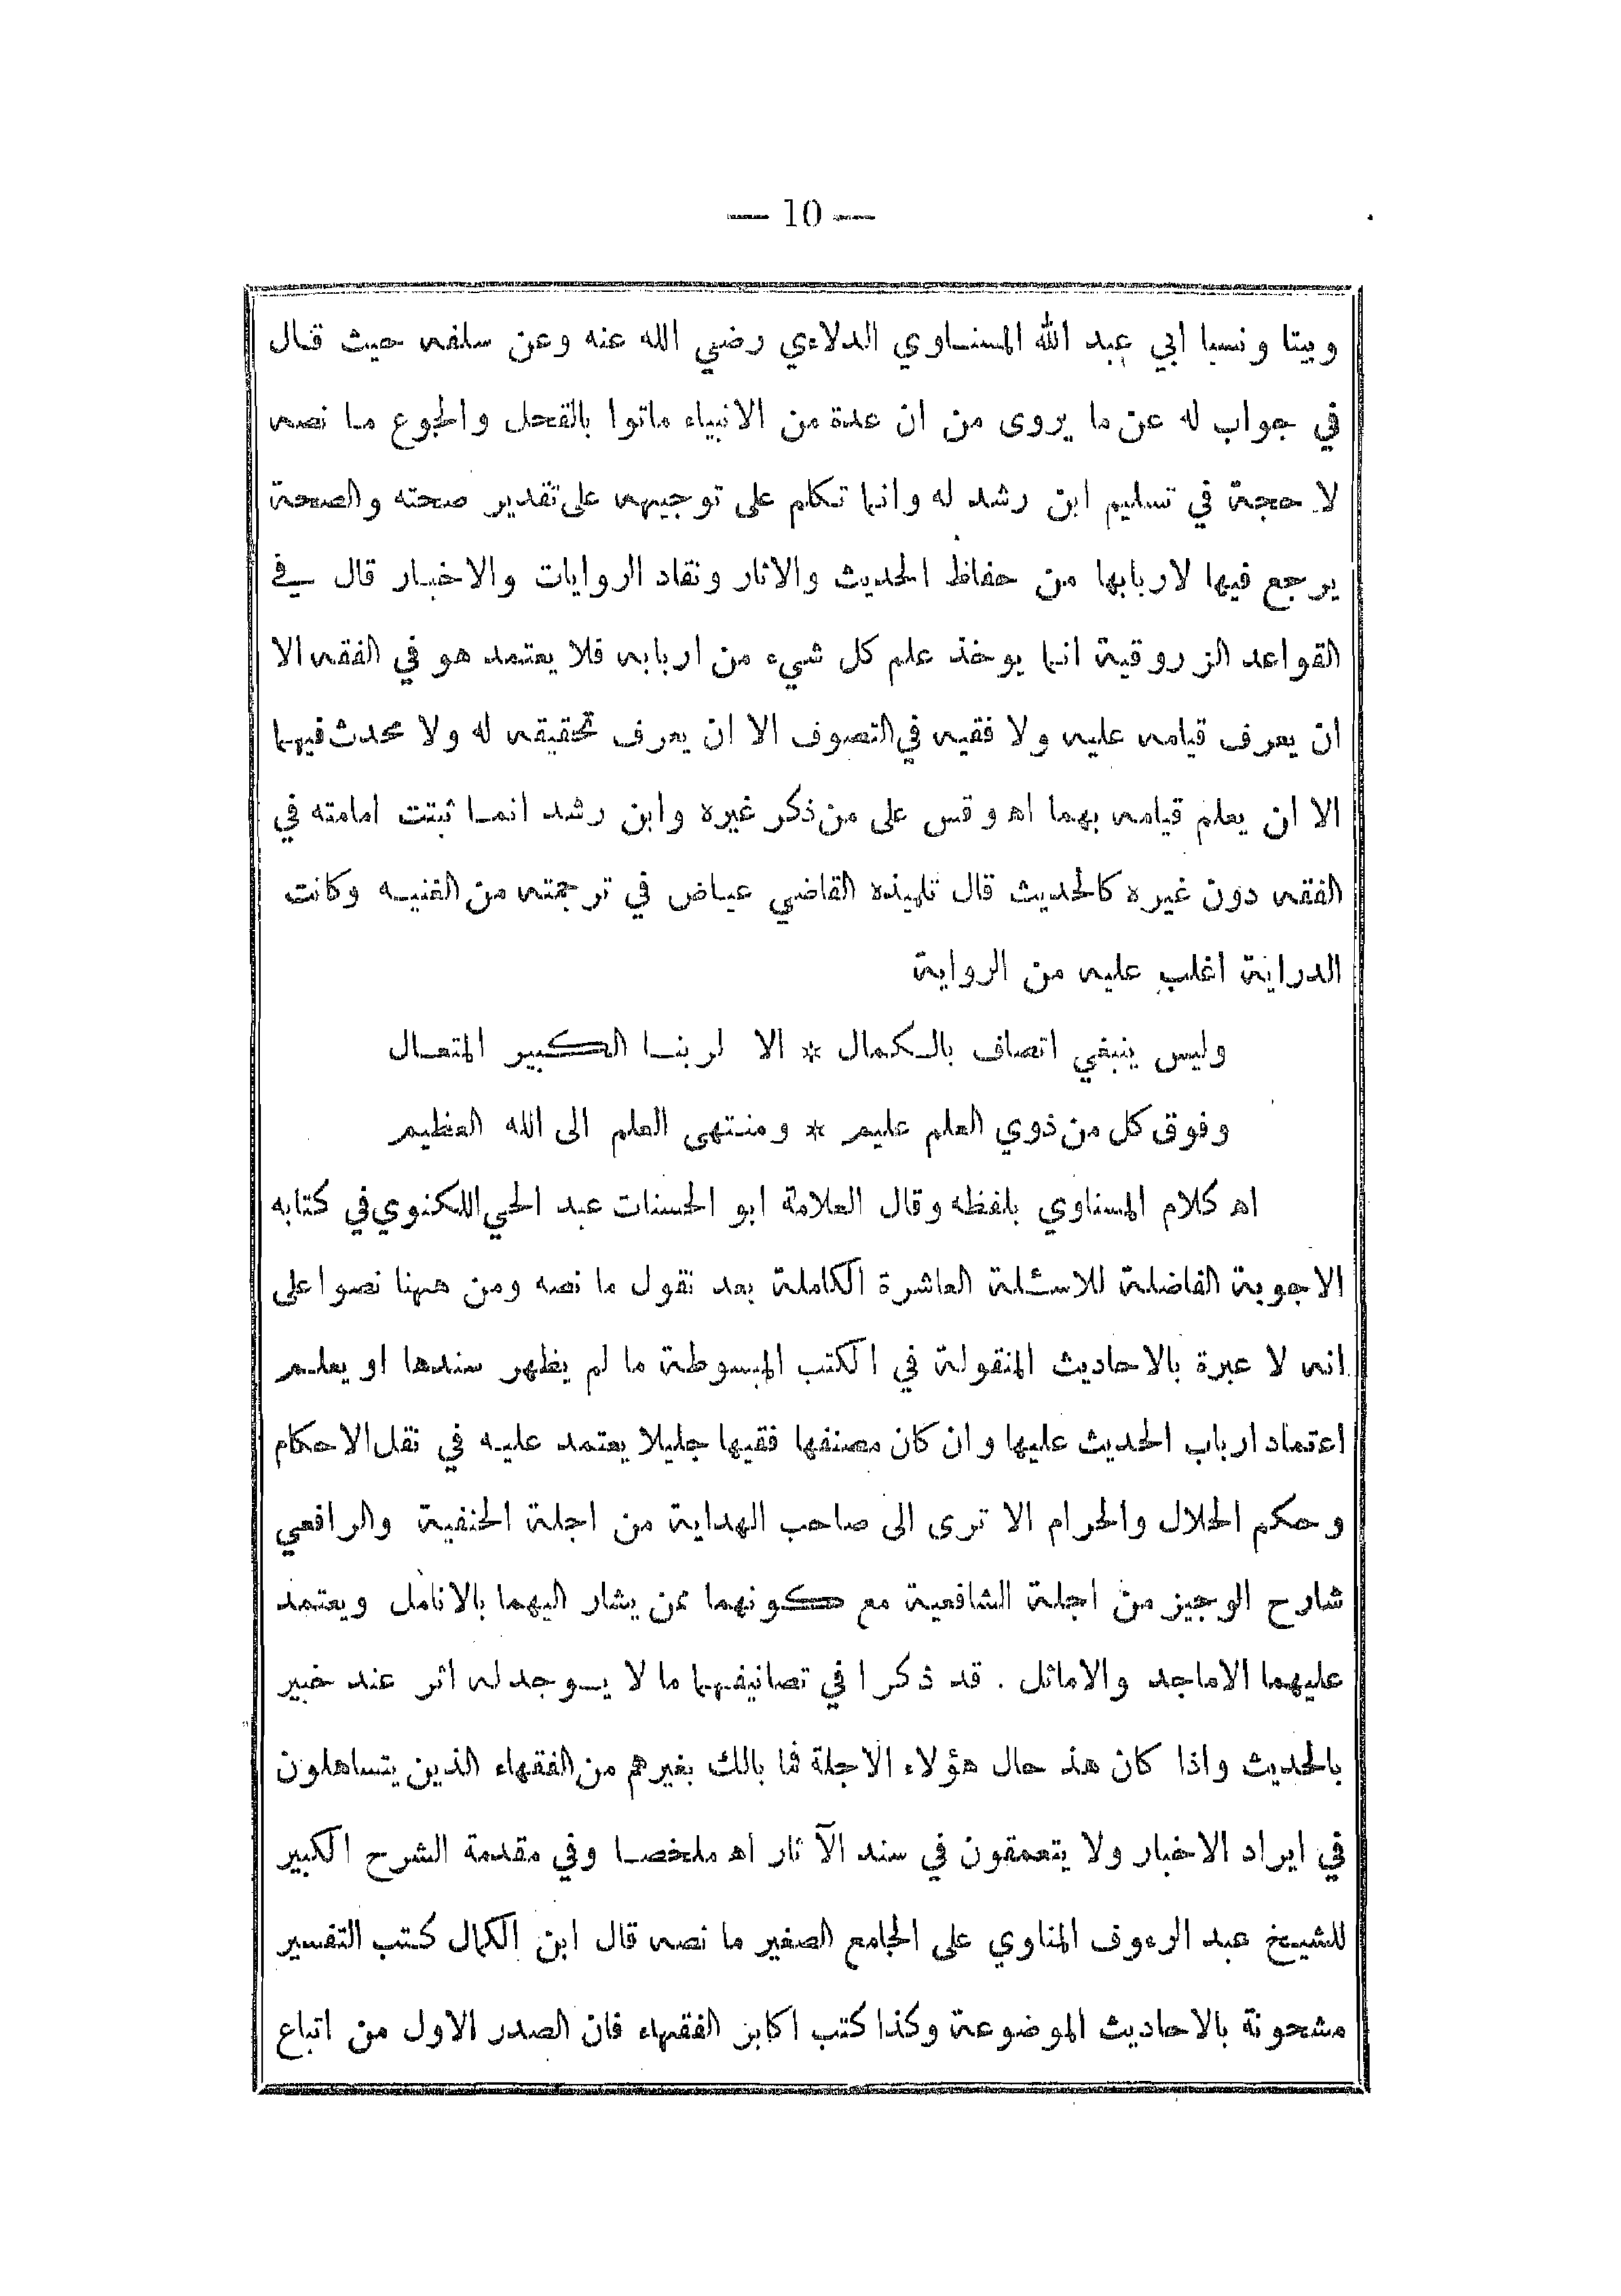 — 10 —
وبيتا ونسبا ابي عبد الله المسناوي الدلاءي رضي الله عنه وعن سلفه حيث قال
في جواب له عن ما يروى من ان عدة من الانبياء ماتوا بالقحل والجوع ما نصه
لا حجة في تسليم ابن رشد له وانما تكلم على توجيهه على تقدير صحته والصحة
يرجع فيها لاربابها من حفاظ الحديث والاثار ونقاد الروايات والاخبار قال في
القواعد الزروقية انما يوخذ علم كل شيء من اربابه فلا يعتمد هو في الفقه الا
ان يعرف قيامه عليه ولا فقيه في التصوف الا ان يعرف تحقيقه له ولا محدث فيهما
الا ان يعلم قيامه بهما اه وقس على من ذكر غيره وابن رشد انما ثبتت امامته في
الفقه دون غيره كالحديث قال تلميذه القاضي عياض في ترجمته من الغنيه وكانت
الدراية اغلب عليه من الرواية
وليس ينبغي اتصاف بالكمال * الا لربنا الكبير المتعال
وفوق كل من ذوي العلم عليم * ومنتهى العلم الى الله العظيم
اه كلام المسناوي بلفظه وقال العلامة ابو الحسنات عبد الحي اللكنوي في كتابه
الاجوبة الفاضلة للاسئلة العاشرة الكاملة بعد نقول ما نصه ومن ههنا نصوا على
انه لا عبرة بالاحاديث المنقولة في الكتب المبسوطة ما لم يظهر سندها او يعلم
اعتماد ارباب الحديث عليها وان كان مصنفها فقيها جليلا يعتمد عليه في نقل الاحكام
وحكم الحلال والحرام الا ترى الى صاحب الهداية من اجلة الحنفية والرافعي
شارح الوجيز من اجلة الشافعية مع كونهما ممن يشار اليهما بالانامل ويعتمد
عليهما الاماجد والاماثل . قد ذكرا في تصانيفهما ما لا يوجد له اثر عند خبير
بالحديث واذا كان هذ حال هؤلاء الاجلة فما بالك بغيرهم من الفقهاء الذين يتساهلون
في ايراد الاخبار ولا يتعمقون في سند الآثار اه ملخصا وفي مقدمة الشرح الكبير
للشيخ عبد الرءوف المناوي على الجامع الصغير ما نصه قال ابن الكمال كتب التفسير
مشحونة بالاحاديث الموضوعة وكذا كتب اكابر الفقهاء فان الصدر الاول من اتباع